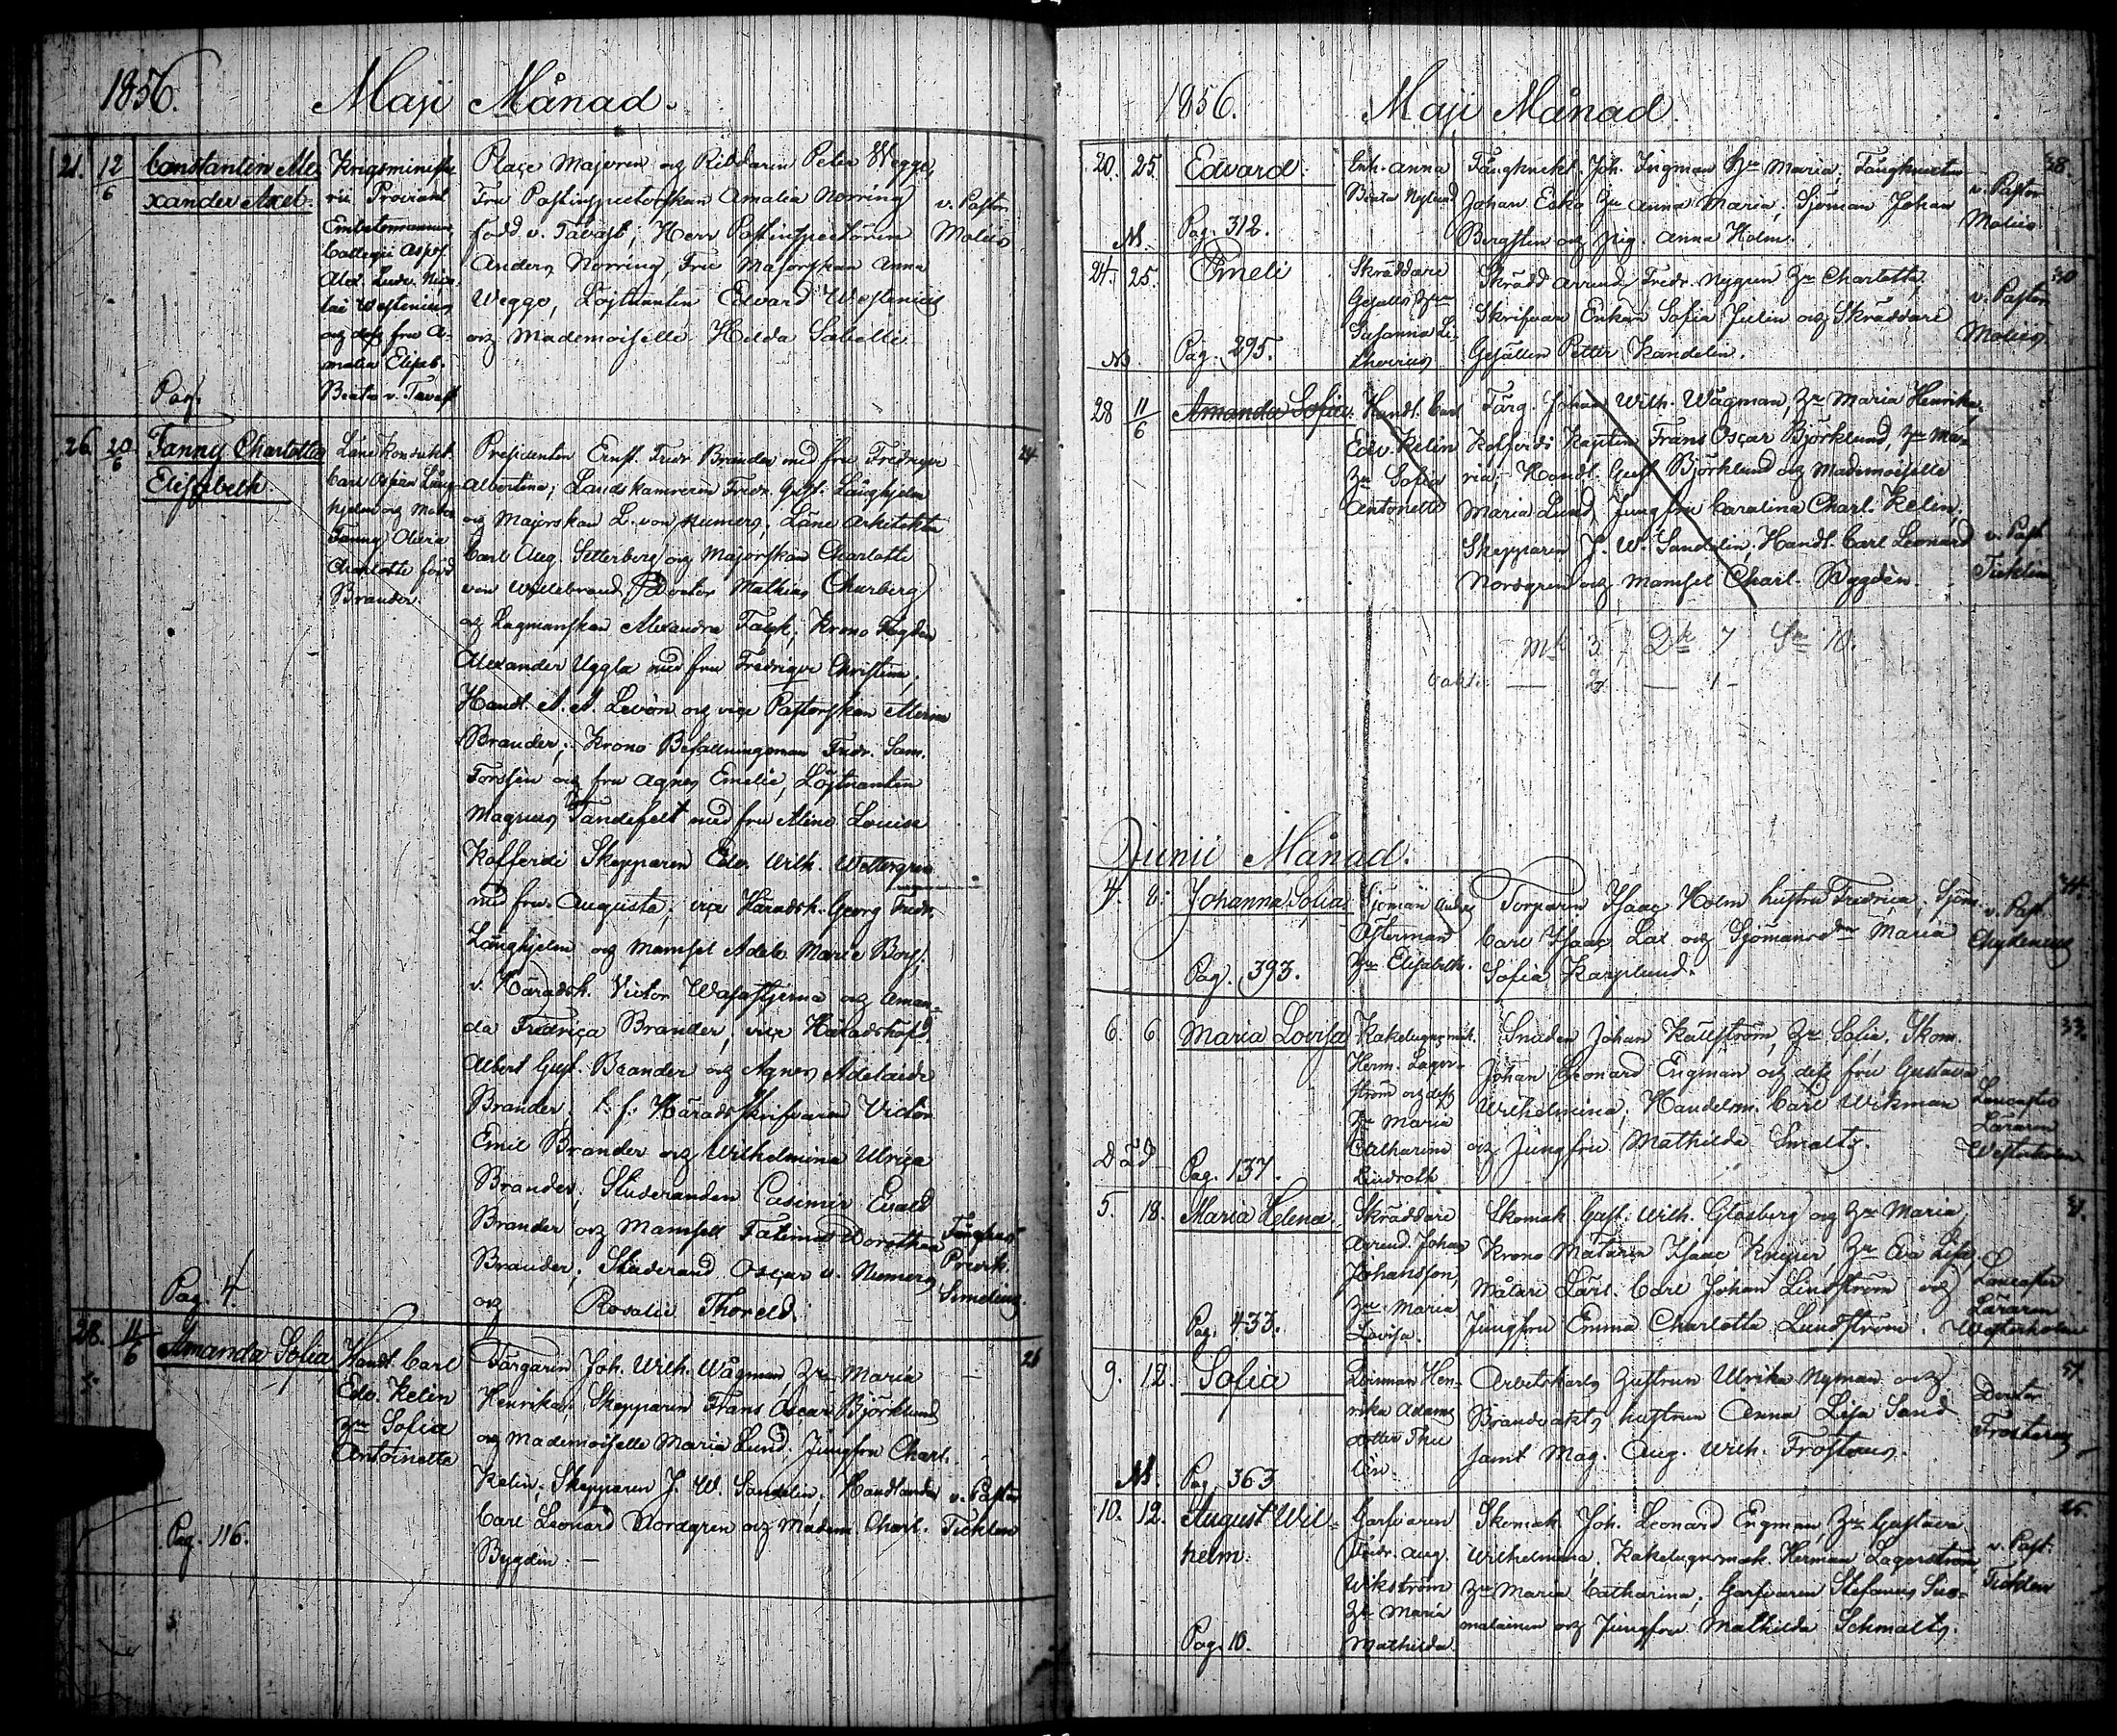 1856. Maji Månad.
21. 12/6 Constantin Ale-
xander Axel.
Pag.
Krigsministe-
rii Proviant
Embetsmannen,
Collegii Assess.
Alex. Ludv. Nico-
lai Westenius
och dess fru A-
malia Elisab.
Beata v. Tavast
Place Majoren och Riddaren Peter Wegge,
Fru Postinspectorskan Amalia Norring
född v. Tavast; Herr Postinspectoren
Anders Norring, Fru Majorskan Anna
Wegge, Löjtnanten Edvard Westenius
och Mademoiselle Hilda Sabelli.
v. Pastor
Molius
26. 20/6 Fanny Charlotta
Elisabeth.
Pag. 4.
Läne Kondukt.
Carl Lång-
hjelm och
Fanny
Charlotte född
Brander.
24
Presidenten Ernst Fredr. Brander med fru Fredrique
Albertina; Landskamreren Fredr. Gust. Långhjelm
och Majorskan L. von Numers; Läne Arkitekten
Carl Aug. Setterberg och Majorskan Charlotte
von Willebrand, Doctor Mathias Churberg
och Lagmanskan Alexandra Falck; Krono Fogden
Alexander Uggla med fru Fredrique Christina;
Handl. A. A. Levón och vice Pastorskan
Brander; Krono Befallningsman Fredr. Sam.
Forssén och fru Agnes Emelie, Löjtnanten
Magnus Tandefelt med fru Alino Louise
Kofferdi Skepparen Edv. Wilh. Wettergren
med fru Augusta; vice Häradsh. Georg Fredr.
Långhjelm och Mamsel Adele Marie Borg;
v. Häradsh. Victor Wasastjerna och Aman-
da Fredrica Brander; vice Häradshöfd.
Albert Gust. Brander och Agnes Adelaide
Brander; t. f. Häradsskrifvaren Victor
Emil Brander och Wilhelmina Ulrica
Brander; Studeranden Casimir Evald
Brander och Mamsell Fatima Dorothea
Brander; Studerand. Oscar v. Numers
och Rosalie Thoreld.
Fängelse
Predik.
Simelius.
28. 11/6 Amanda Sofia
Pag. 116.
Handl. Carl
Edv. Kelin
Hu Sofia
Antoinette
26
Färgaren Joh. Wilh. Wågman, Hu Maria
Henrika, Skepparen Frans Oscar Björklund
och Mademoiselle Maria Lund; Jungfru Charl.
Kelin, Skepparen J. W. Sandelin; Handlanden
Carl Leonard Nordgren och Madem. Charl.
Bygdén. —
v. Pastor
Ticklen
1856. Maji Månad.
20. 25. Edvard.
Pag. 312.
Enk. Anna
Beata Nylund
Fångknekt. Joh. Ingman Hu Maria; Fångknekten
Johan Esko Hu Anna Maria; Sjöman Johan
Bergsten och pig. Anna Holm.
v. Pastor
Molius
38.
24. 25. Emeli
Pag. 295.
Skräddare
Gesälls
Susanna Li-
thovius
Skrädd arrend. Fredr. Nygren Hu Charlotta,
Skrifvare Enkan Sofia Julin och Skräddare
Gesällen Petter Kandelin.
v. Pastor
Molius
30
28 11/6 Amanda Sofia
Handl. Carl
Edv. Kelin
Hu Sofia
Antonette
Färg. Johan Wilh. Wågman, Hu Maria Henrika,
Kofferdi Kapten Frans Oscar Björklund, Hu Ma-
ria; Handl. Gust. Björklund och Mademoiselle
Maria Lund, Jungfru Carolina Charl. Kelin,
Skepparen J. W. Sandelin, Handl. Carl Leonard
Nordgren och Mamsel Charl. Bygdén.
v. Past.
Ticklen
Mk 3. Qk 7 Sa 10.
oäkt. — 2 — 1 —
Junii Månad.
4. 8. Johanna Sofia
Pag. 393.
Sjöman Anders
Österman
Hu Elisabeth.
Torparen Isaac Holm hustru Fredrica, Sjöm.
Carl Isaac Lax och Sjömansdtter Maria
Sofia Karplund.
v. Past.
Chydenius
44.
6. 6 Maria Lovisa
Död Pag. 137.
Kakelugnsmak.
Herm. Lager-
ström och dess
Hu Maria
Catharina
Lindroth
Smeden Johan Källström, Hu Sofia, Skom.
Johan Leonard Engman och dess fru Gustava
Wilhelmina, Handelsm. Carl Wikman
och Jungfru Mathilda Smalts.
Lancaster
Läraren
Westerholm
33.
5. 18. Maria Helena
Pag. 433.
Skräddare
Arrend. Johan
Johansson,
Hu Maria
Lovisa.
Skomak. Gust. Wilh. Glasberg och Hu Maria,
Krono Mätaren Isaac Kneiser, Hu Eva Lisa,
Målare Lärl. Carl Johan Lindström och
Jungfru Emma Charlotta Lundström.
Lancaster
Läraren
Westerholm
9. 12. Sofia
Pag. 363
Qvinnan Hen-
rika Adams
dotter Thu-
lén.
Arbetskarls Hustrun Ulrika Nyman och
Brandvakts hustrun Anna Lisa Sand
samt Mag. Aug. Wilh. Frosterus.
Doctor
Frosterus
10. 12. August Wil-
helm.
Pag. 10.
Garfvaren
Fredr. Aug.
Wikström
Hu Maria
Mathilda.
Skomak. Joh. Leonard Engman, Hu Gustava
Wilhelmina, Kakelugnsmak. Herman Lagerström,
Hu Maria Catharina; Garfvaren Stefanus Suo-
malainen och Jungfru Mathilda Schmalts.
v. Past.
Ticklen